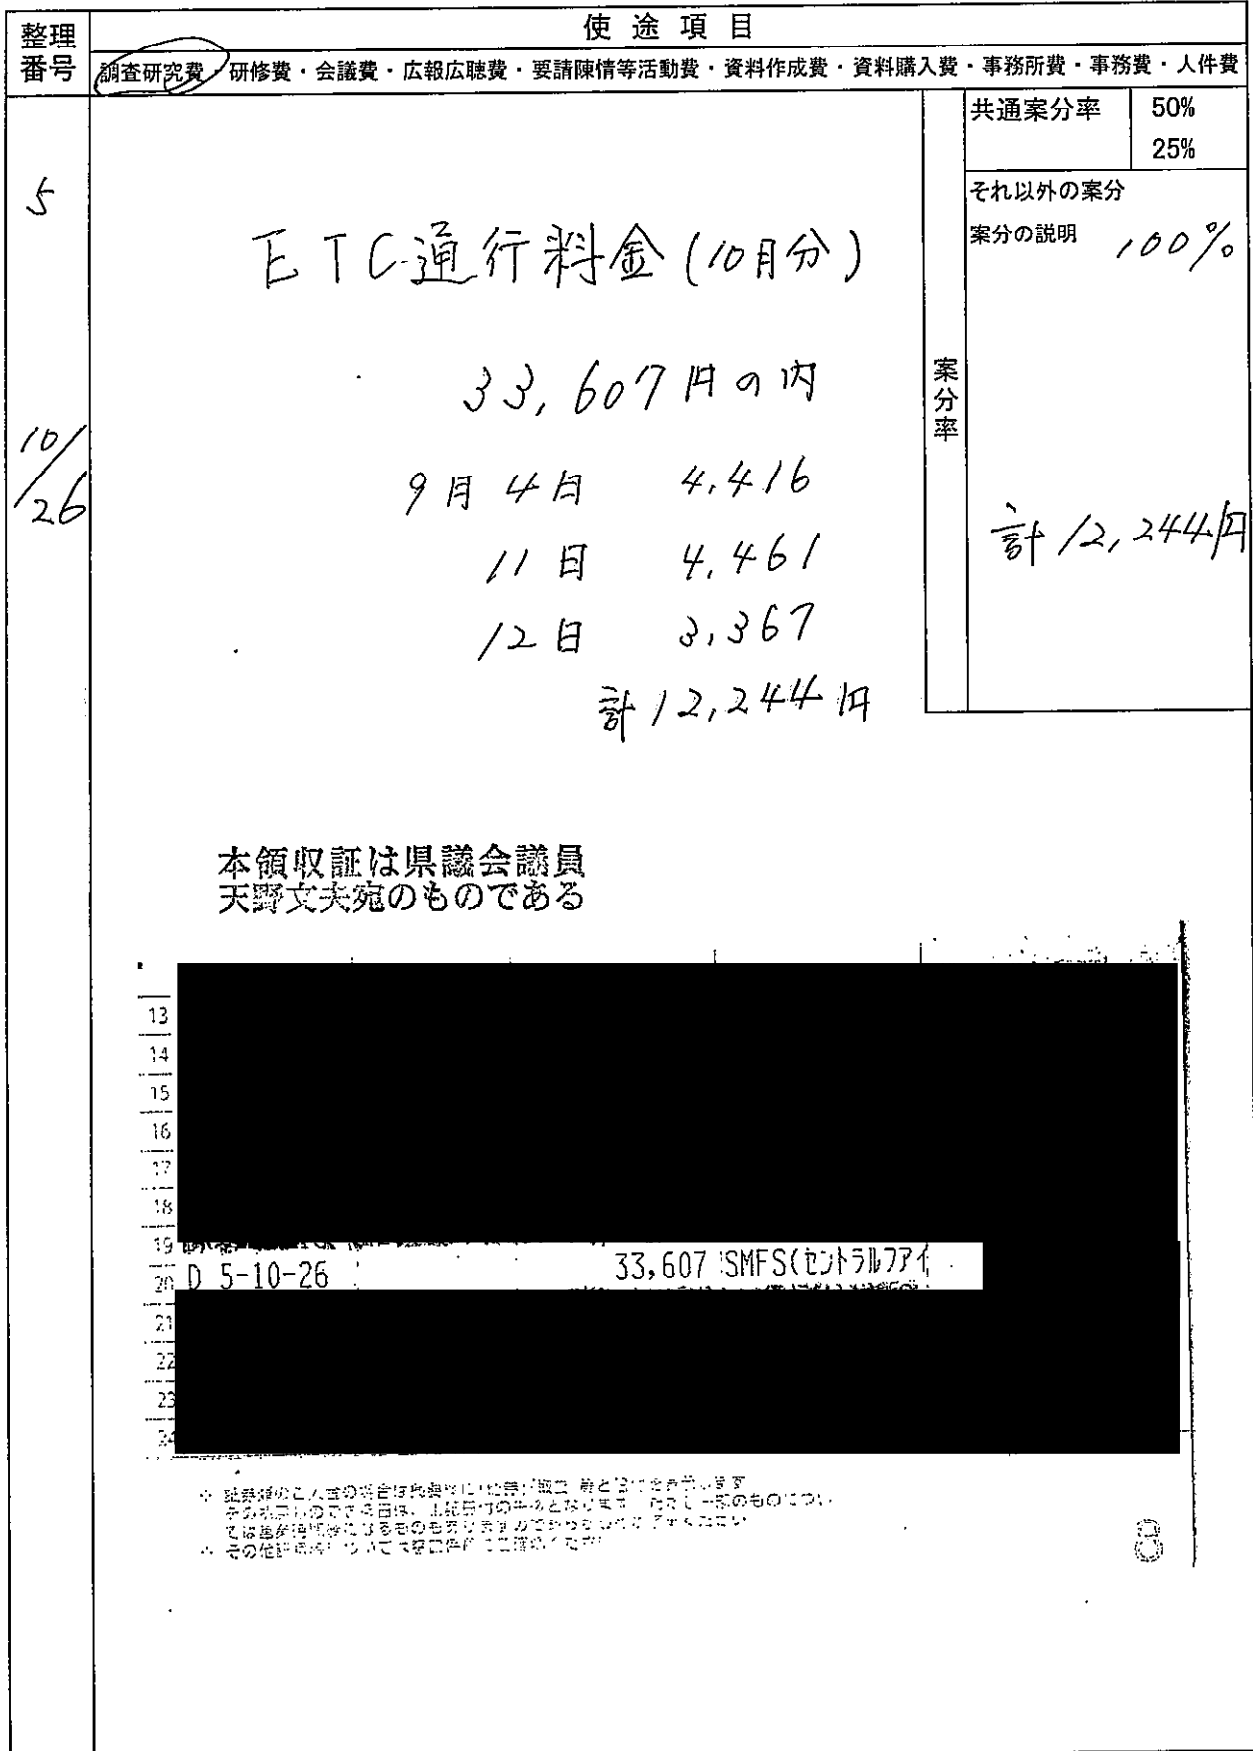 整理番号
使途項目
調査研究費・研修費・会議費・広報広聴費・要請陳情等活動費・資料作成費・資料購入費・事務所費・事務費・人件費
5
10/26
ETC通行料金(10月分)
33,607円の内
9月4日 4,416
11日 4,461
12日 3,367
計12,244円
案分率
共通案分率 50%
25%
それ以外の案分
案分の説明 100%
計12,244円
本領収証は県議会議員
天野文夫宛のものである
13
14
15
16
17
18
19
20 D 5-10-26 33,607 SMFS(セントラルフアイ
21
22
23
24
8